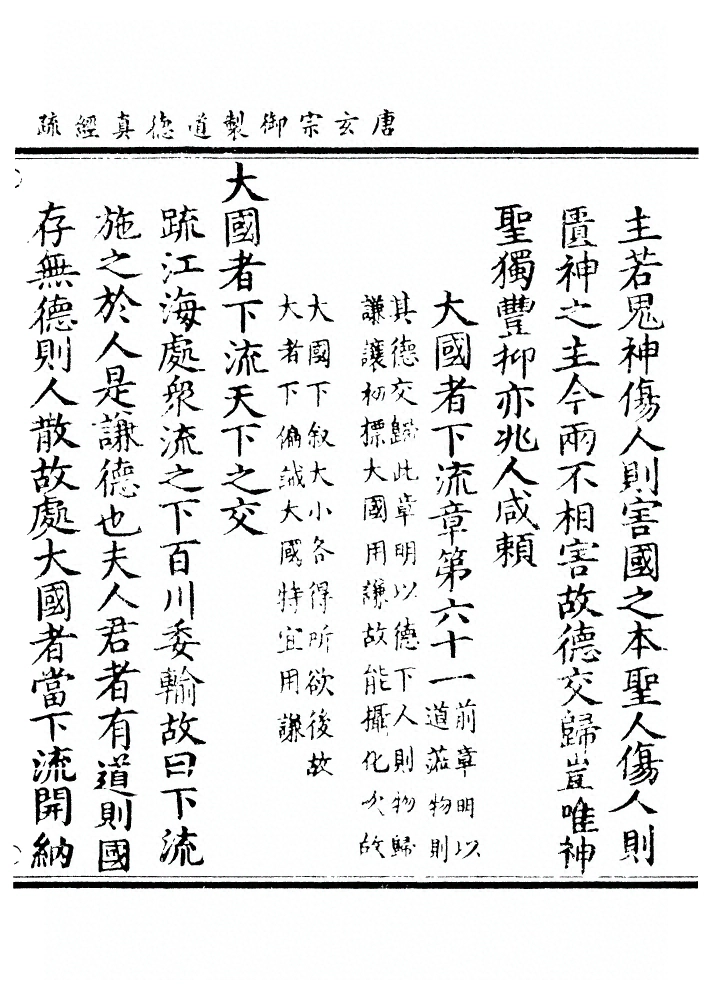 唐玄宗御製道德真經疏
主若鬼神傷人則害國之本聖人傷人則
匱神之主今兩不相害故德交歸豈唯神
聖獨豐抑亦兆人咸賴
大國者下流章第六十一
前章明以
道莅物則
其德交歸此章明以德下人則物歸
謙讓初標大國用謙故能攝化次故
大國下叙大小各得所欲後故
大者下偏誡大國特宜用謙
大國者下流天下之交
疏江海處衆流之下百川委輸故曰下流
施之於人是謙德也夫人君者有道則國
存無德則人散故處大國者當下流開納